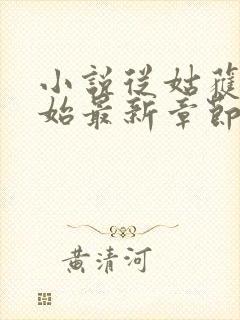 小說從姑獲
始最新章節
黃清河